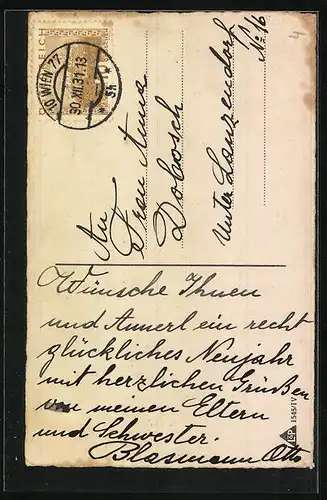 ÖSTERREICH
10 WIEN 77
30.XII.31.13
5h
An
Frau Anna
Dobosch
Unter Lanzendorf
No 16
4
Wünsche Ihnen
und Annerl ein recht
glückliches Neujahr
mit herzlichen Grüßen
von meinen Eltern
und Schwester.
Blasmann Otto
1545/IV